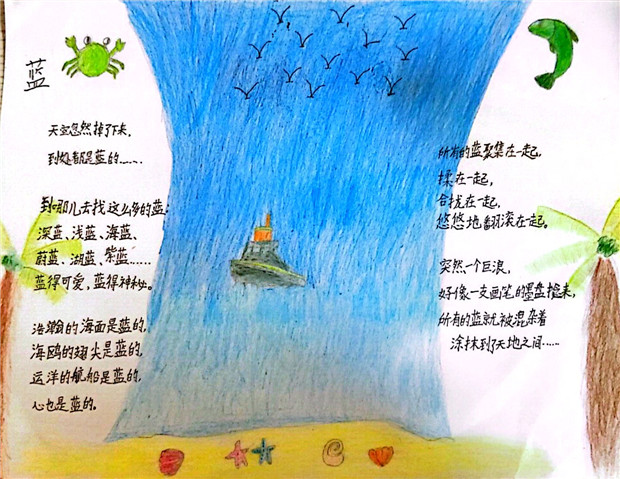 蓝
天空忽然掉了下来,
到处都是蓝的……
到哪儿去找这么多的蓝:
深蓝、浅蓝、海蓝、
蔚蓝、湖蓝、紫蓝……
蓝得可爱,蓝得神秘。
浩瀚的海面是蓝的,
海鸥的翅尖是蓝的,
远洋的航船是蓝的,
心也是蓝的。
所有的蓝聚集在一起,
揉在一起,
合拢在一起,
悠悠地翻滚在一起。
突然一个巨浪,
好像一支画笔的墨盘
所有的蓝就被混杂着
涂抹到了天地之间……